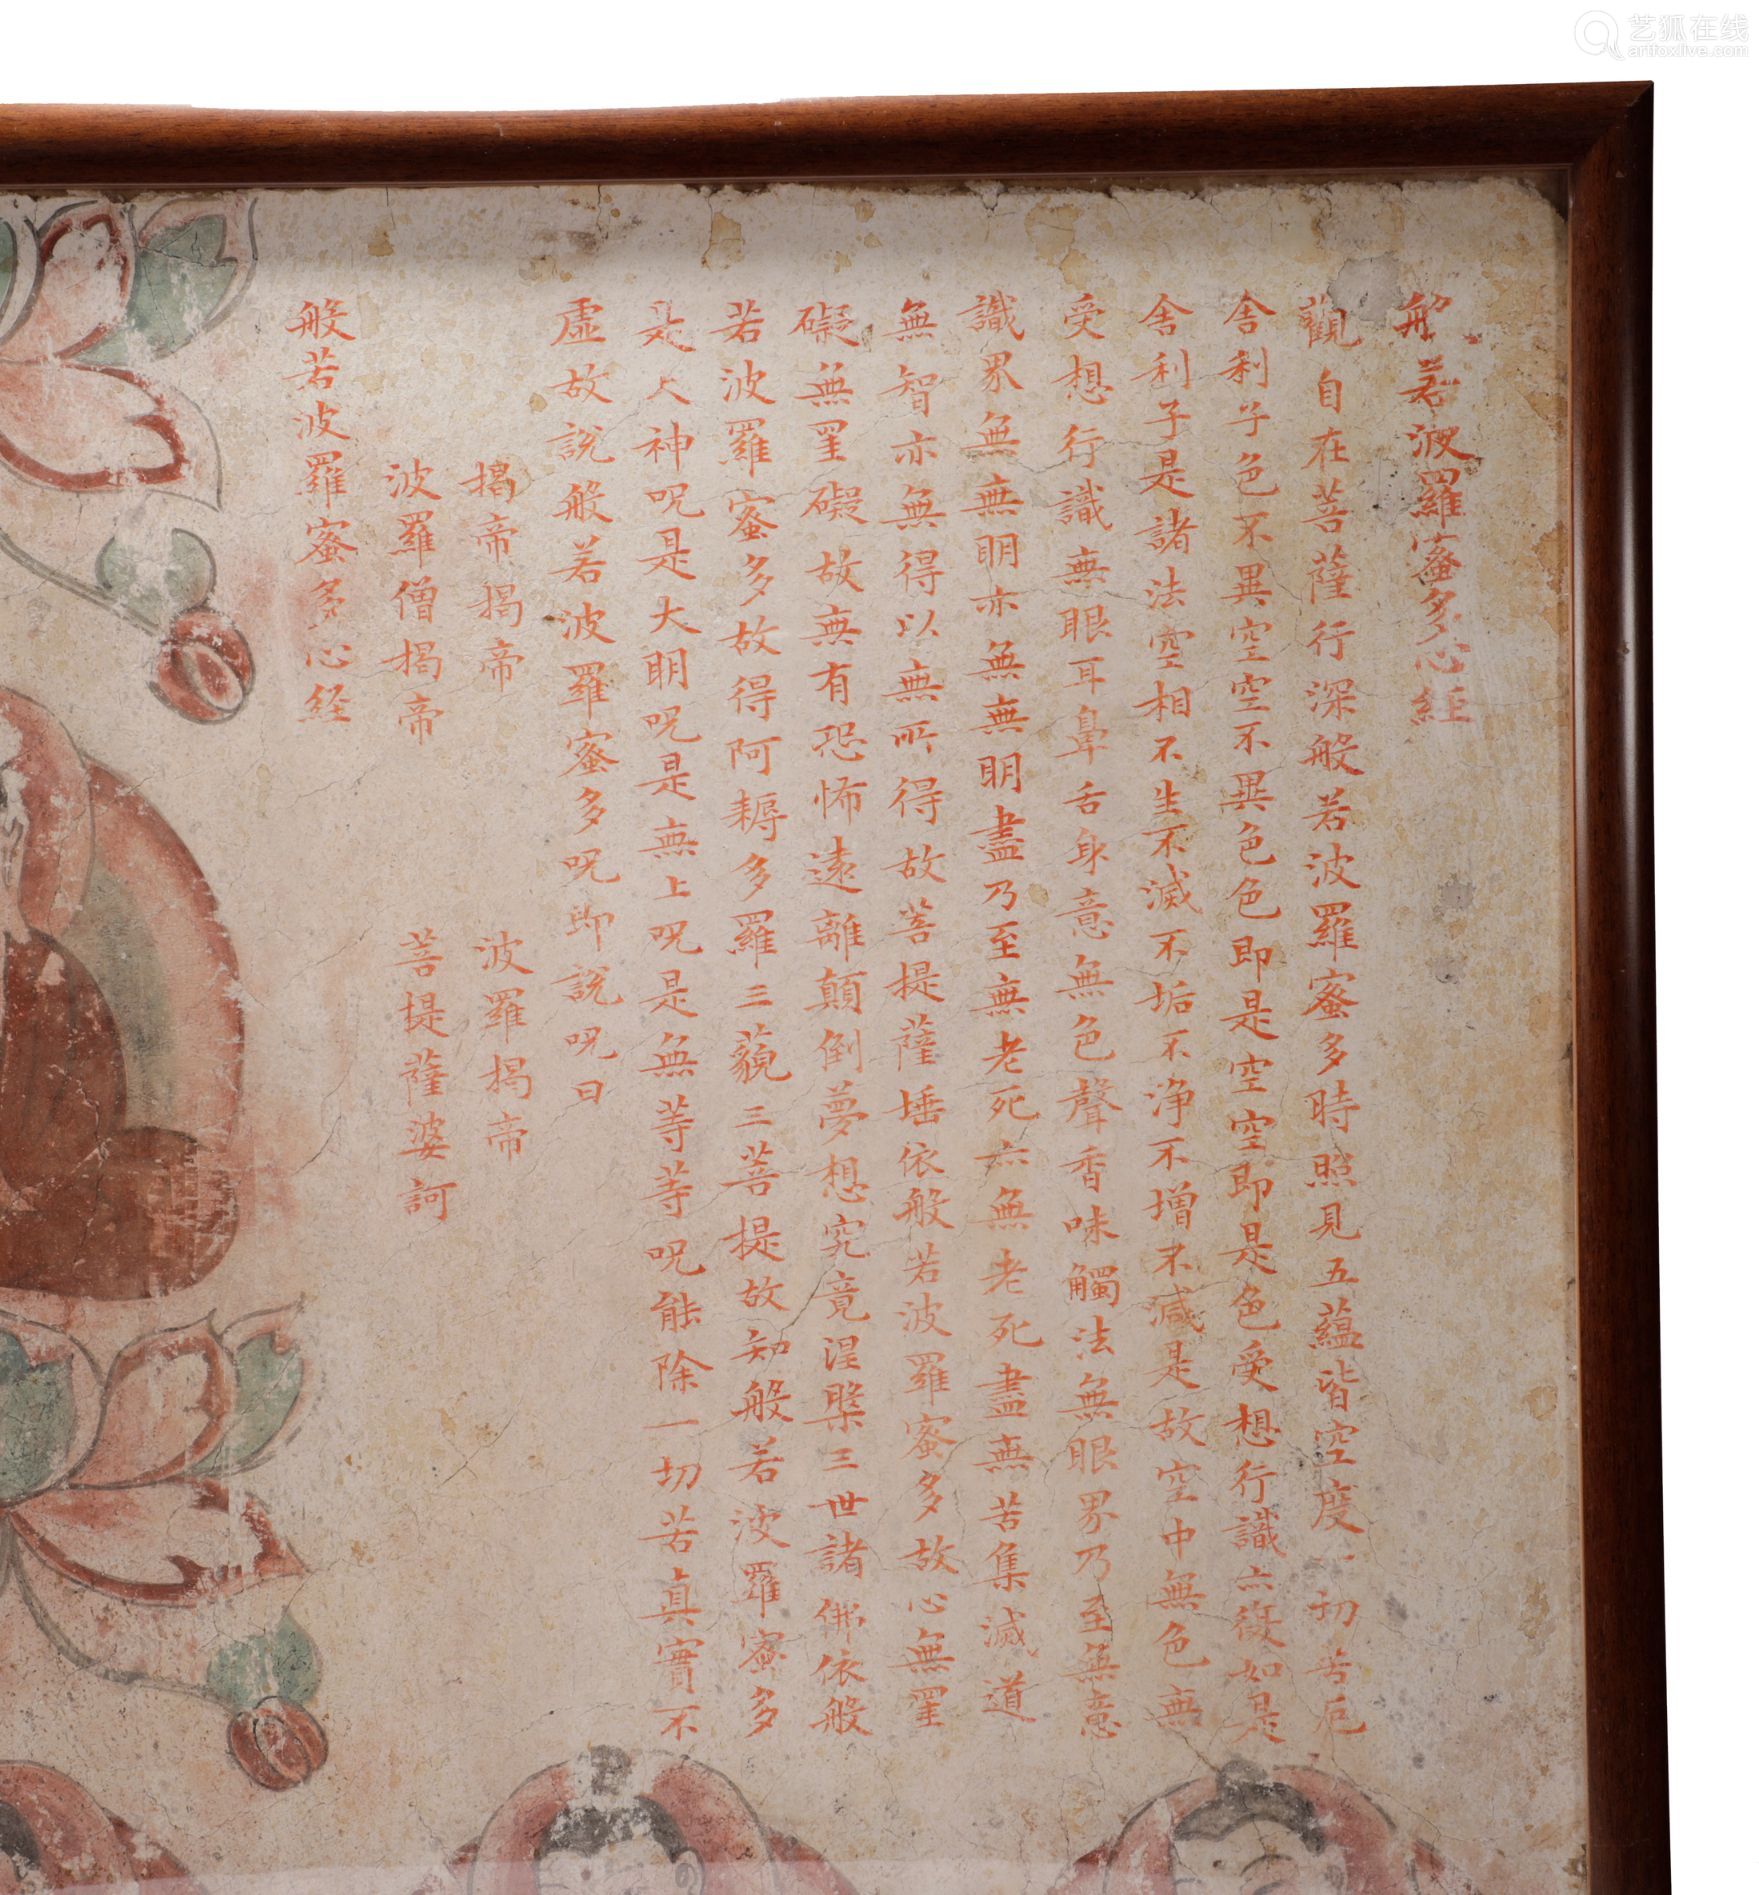 般若波羅蜜多心経
觀自在菩薩行深般若波羅蜜多時照見五蘊皆空度一切苦厄
舍利子色不異空空不異色色即是空空即是色受想行識亦復如是
舍利子是諸法空相不生不滅不垢不净不增不減是故空中無色無
受想行識無眼耳鼻舌身意無色聲香味觸法無眼界乃至無意
識界無無明亦無無明盡乃至無老死亦無老死盡無苦集滅道
無智亦無得以無所得故菩提薩埵依般若波羅蜜多故心無罣
礙無罣礙故無有恐怖遠離顛倒夢想究竟涅槃三世諸佛依般
若波羅蜜多故得阿耨多羅三藐三菩提故知般若波羅蜜多
是大神呪是大明呪是無上呪是無等等呪能除一切苦真實不
虛故說般若波羅蜜多呪即說呪曰
揭帝揭帝 波羅揭帝
波羅僧揭帝 菩提薩婆訶
般若波羅蜜多心経
艺狐在线
artfoxlive.com